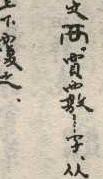 文襾賈覈字从
上下覆之